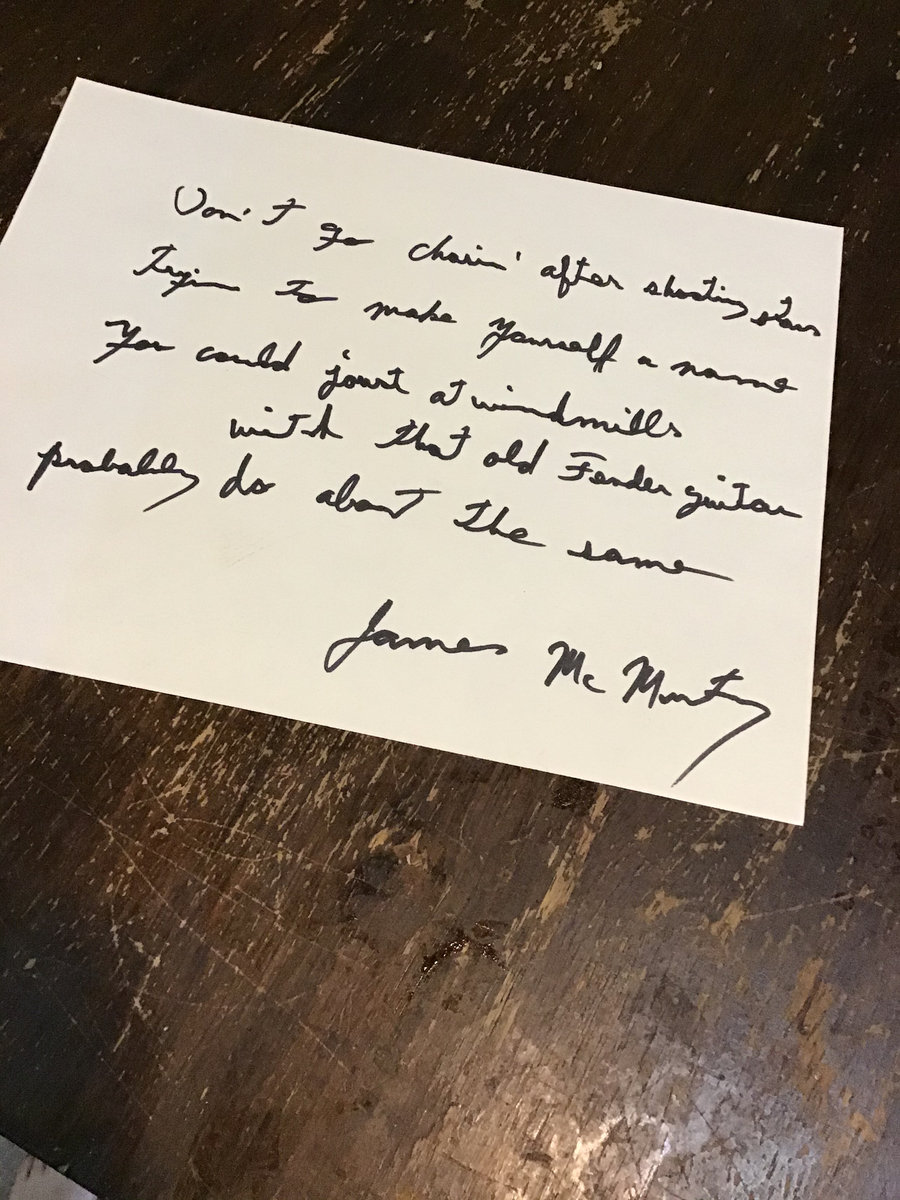 Don't go chasin' after shooting stars
Tryin to make yourself a name
You could joust at windmills
with that old Fender guitar
probably do about the same
James McMurtry